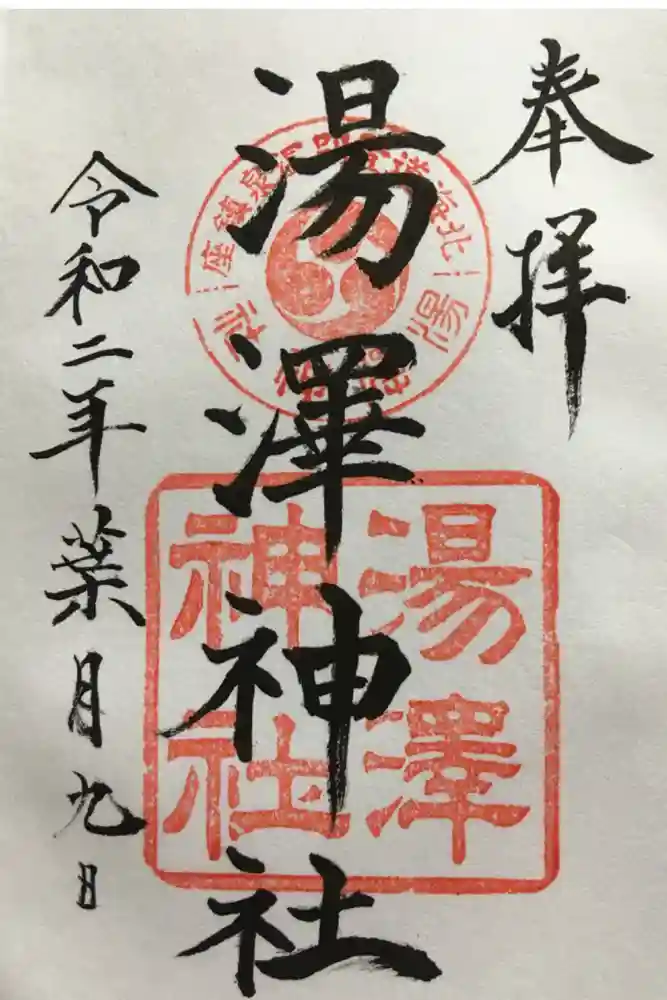 奉拝
湯澤神社
湯澤
神社
令和二年葉月九日